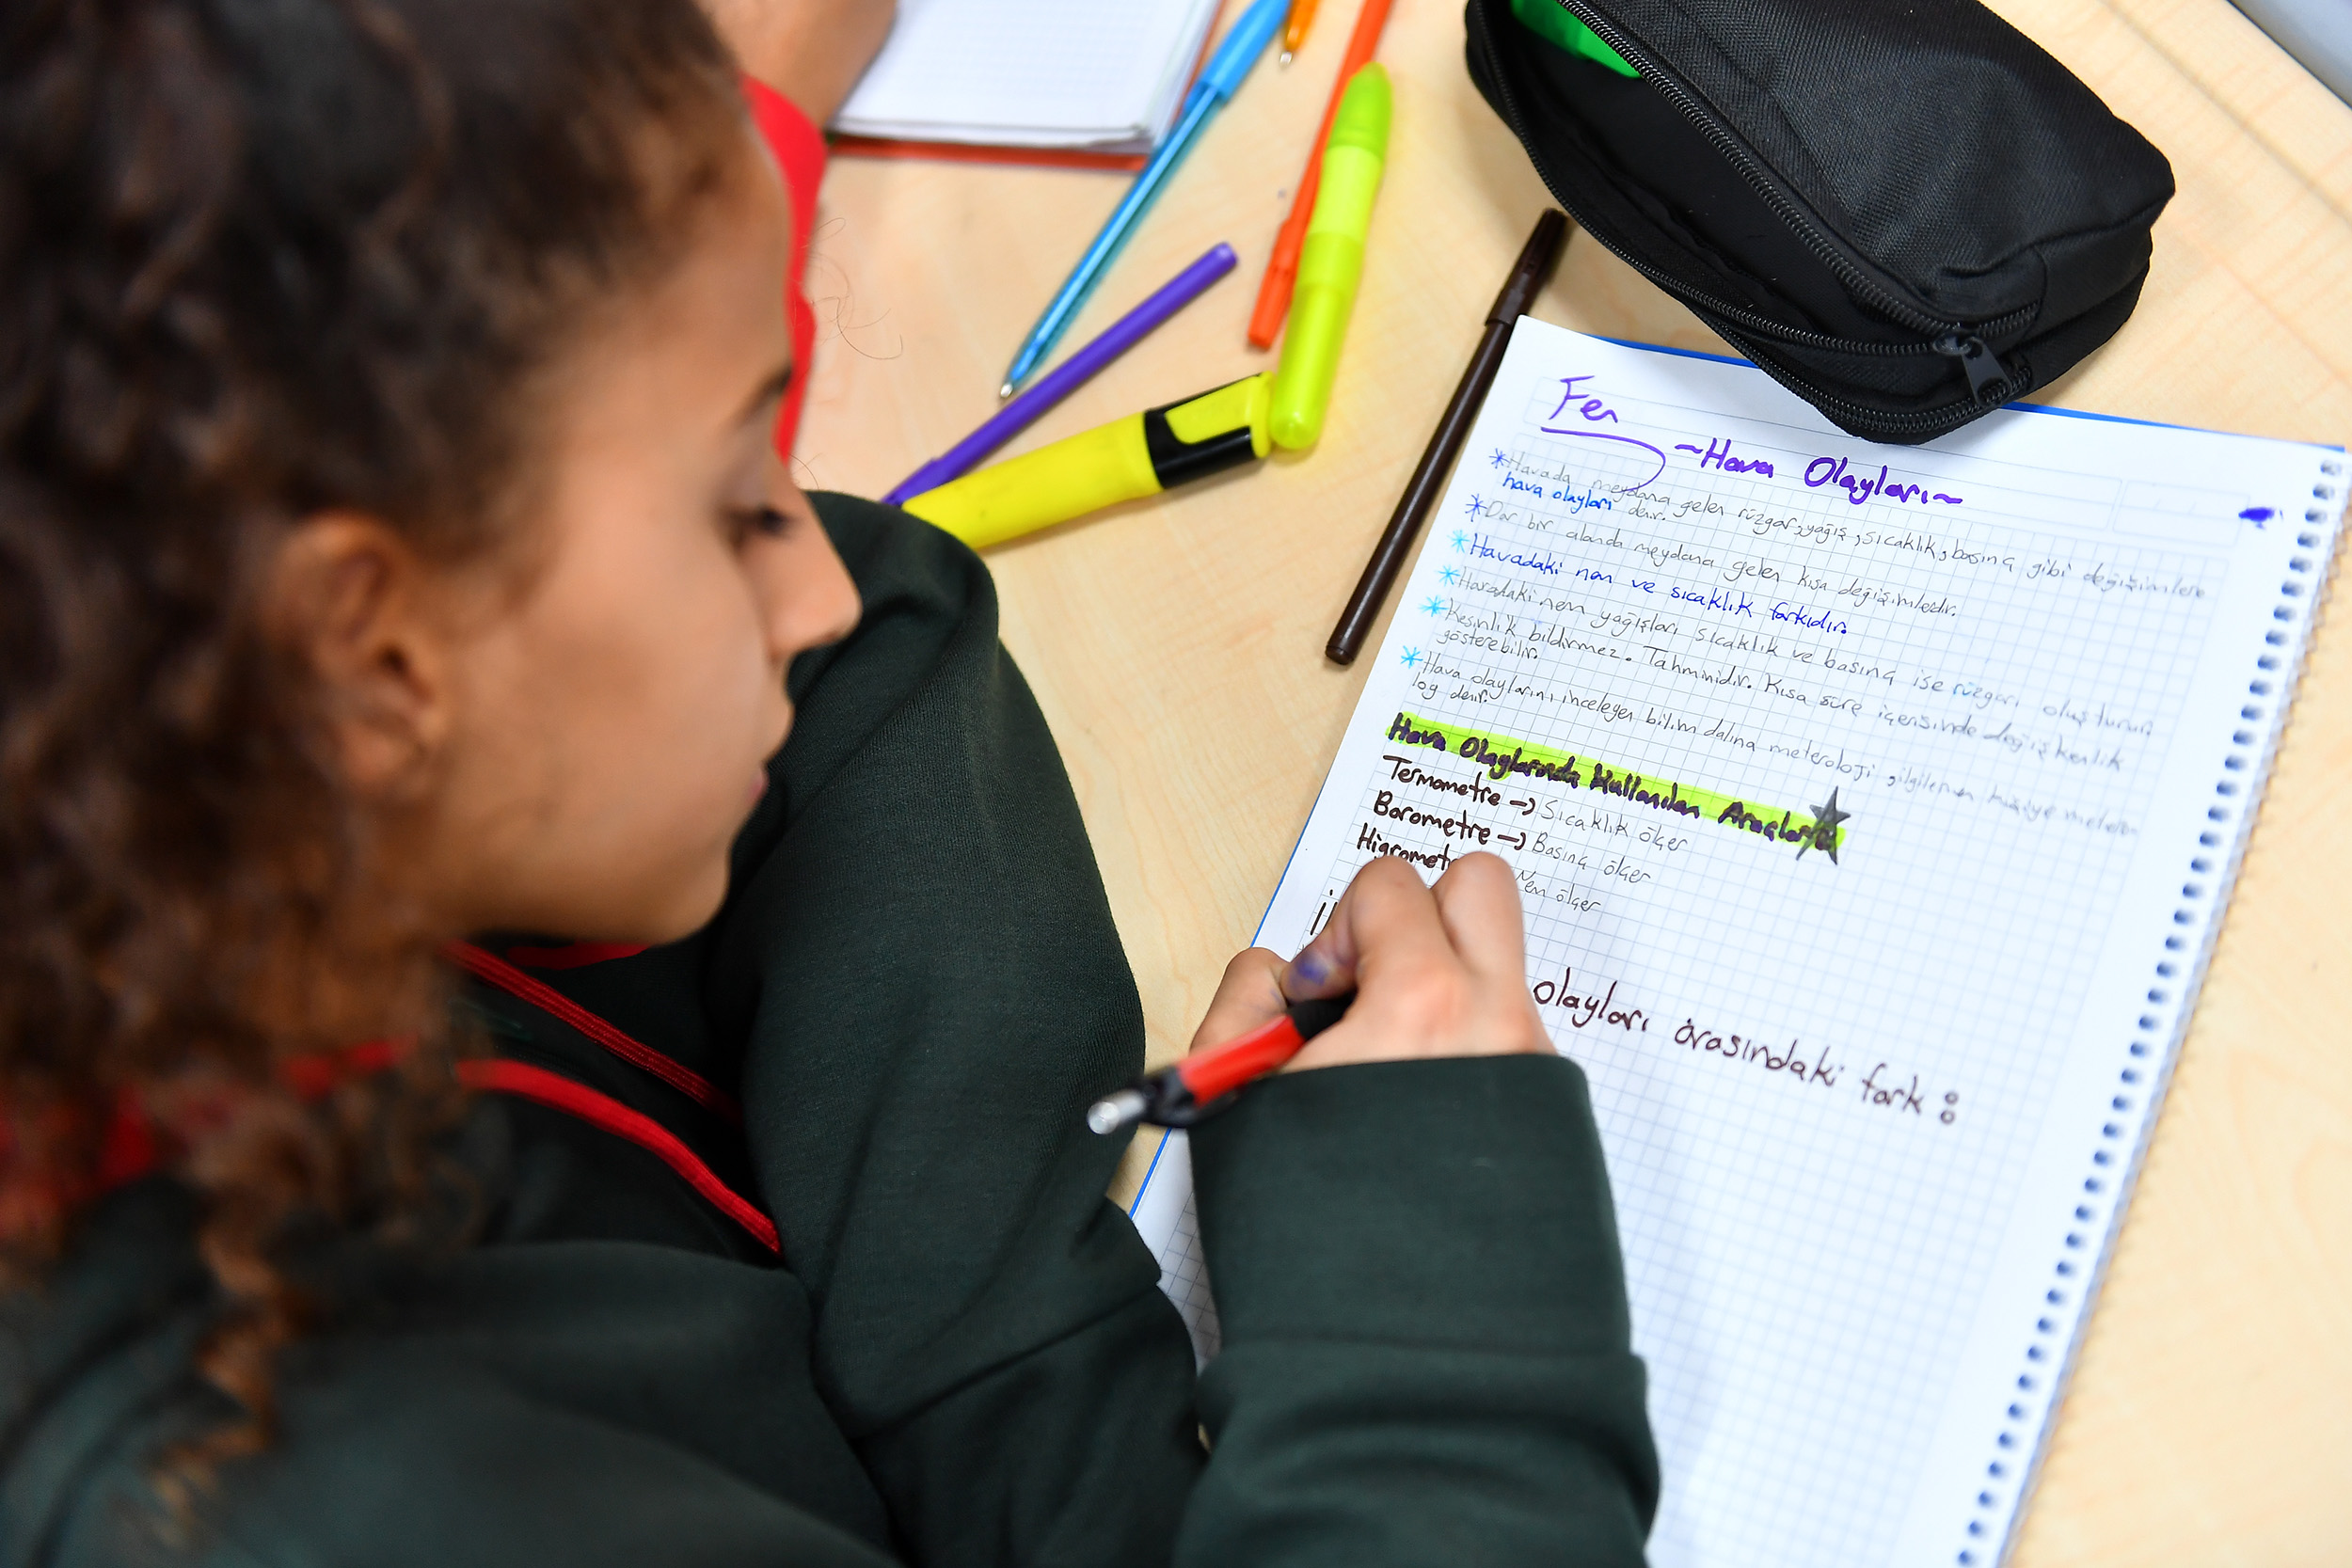 Fen
~Hava Olayları~
*Havada meydana gelen rüzgar, yağış, sıcaklık, basınç gibi değişimlere
hava olayları denir.
*Dar bir alanda meydana gelen kısa değişimlerdir.
*Havadaki nem ve sıcaklık farkıdır.
*Havadaki nem yağışları sıcaklık ve basınç ise rüzgarı oluşturur.
*Kesinlik bildirmez. Tahminidir. Kısa süre içerisinde değişkenlik
gösterebilir.
*Hava olaylarını inceleyen bilim dalına meteroloji, ilgilenen kişiye metero
log denir.
Hava Olaylarında Kullanılan Araçlar
Termometre → Sıcaklık ölçer
Barometre → Basınç ölçer
Higromet Nem ölçer
olayları arasındaki fark :